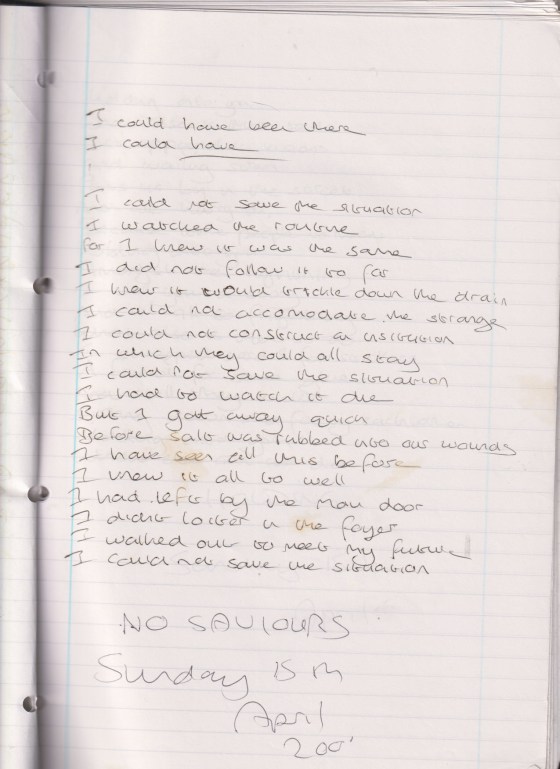 I could have been there
I could have
I could not save the situation
I watched the routine
for I knew it was the same
I did not follow it to far
I knew it would trickle down the drain
I could not accomodate the strange
I could not construct an institution
In which they could all stay
I could not save the situation
I had to watch it die
But I gott away quick
Before salt was rubbed into our wounds
I have seen all this before
I knew it all to well
I had left by the main door
I didnt loiter in the foyer
I walked out to meet my future
I could not save the situation
NO SAVIOURS
Sunday 15th
April
2001